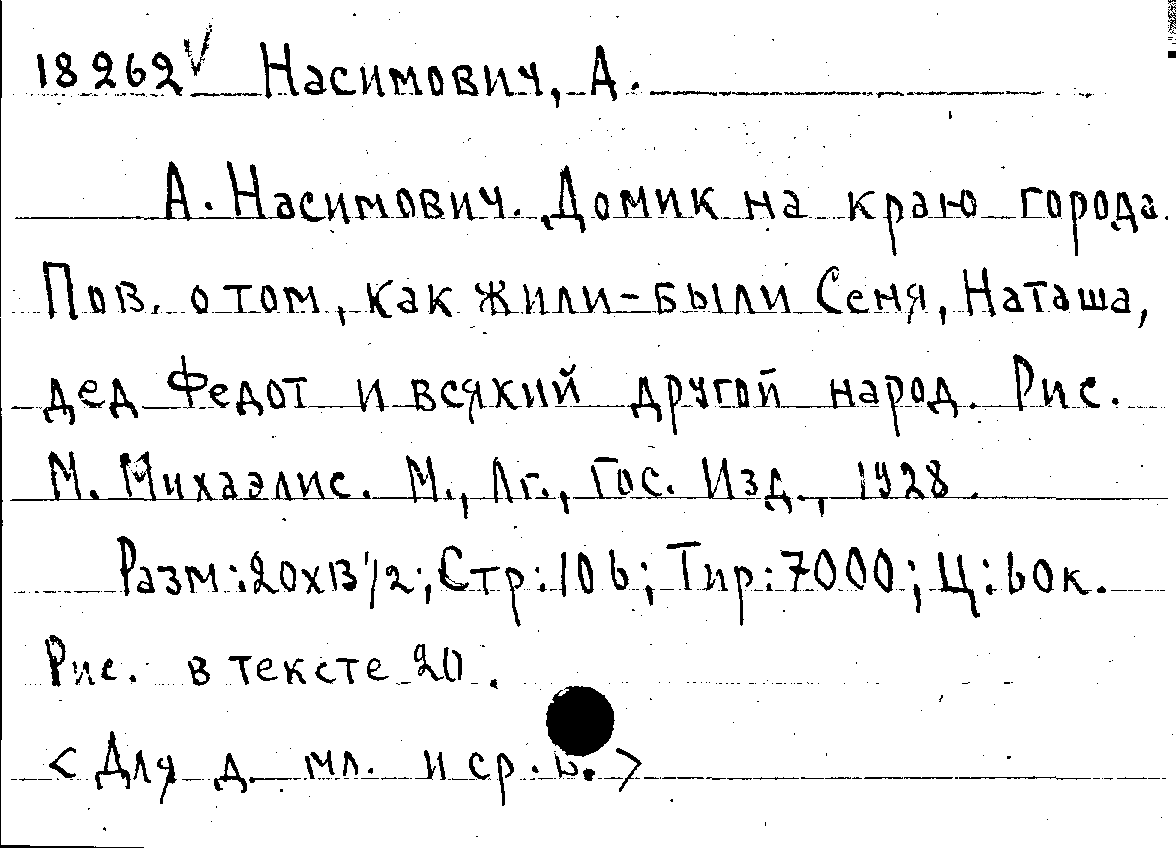 18262 √ Насимович, А.
А. Насимович. Домик на краю города.
Пов. о том, как жили-были Сеня, Наташа,
дед Федот и всякий другой народ. Рис.
М. Михаэлис. М., Лг., Гос. Изд., 1928.
Разм:20х13 1/2; Стр:106; Тир:7000; Ц:60к.
Рис. в тексте 20.
<Для д. мл. и ср. в.>